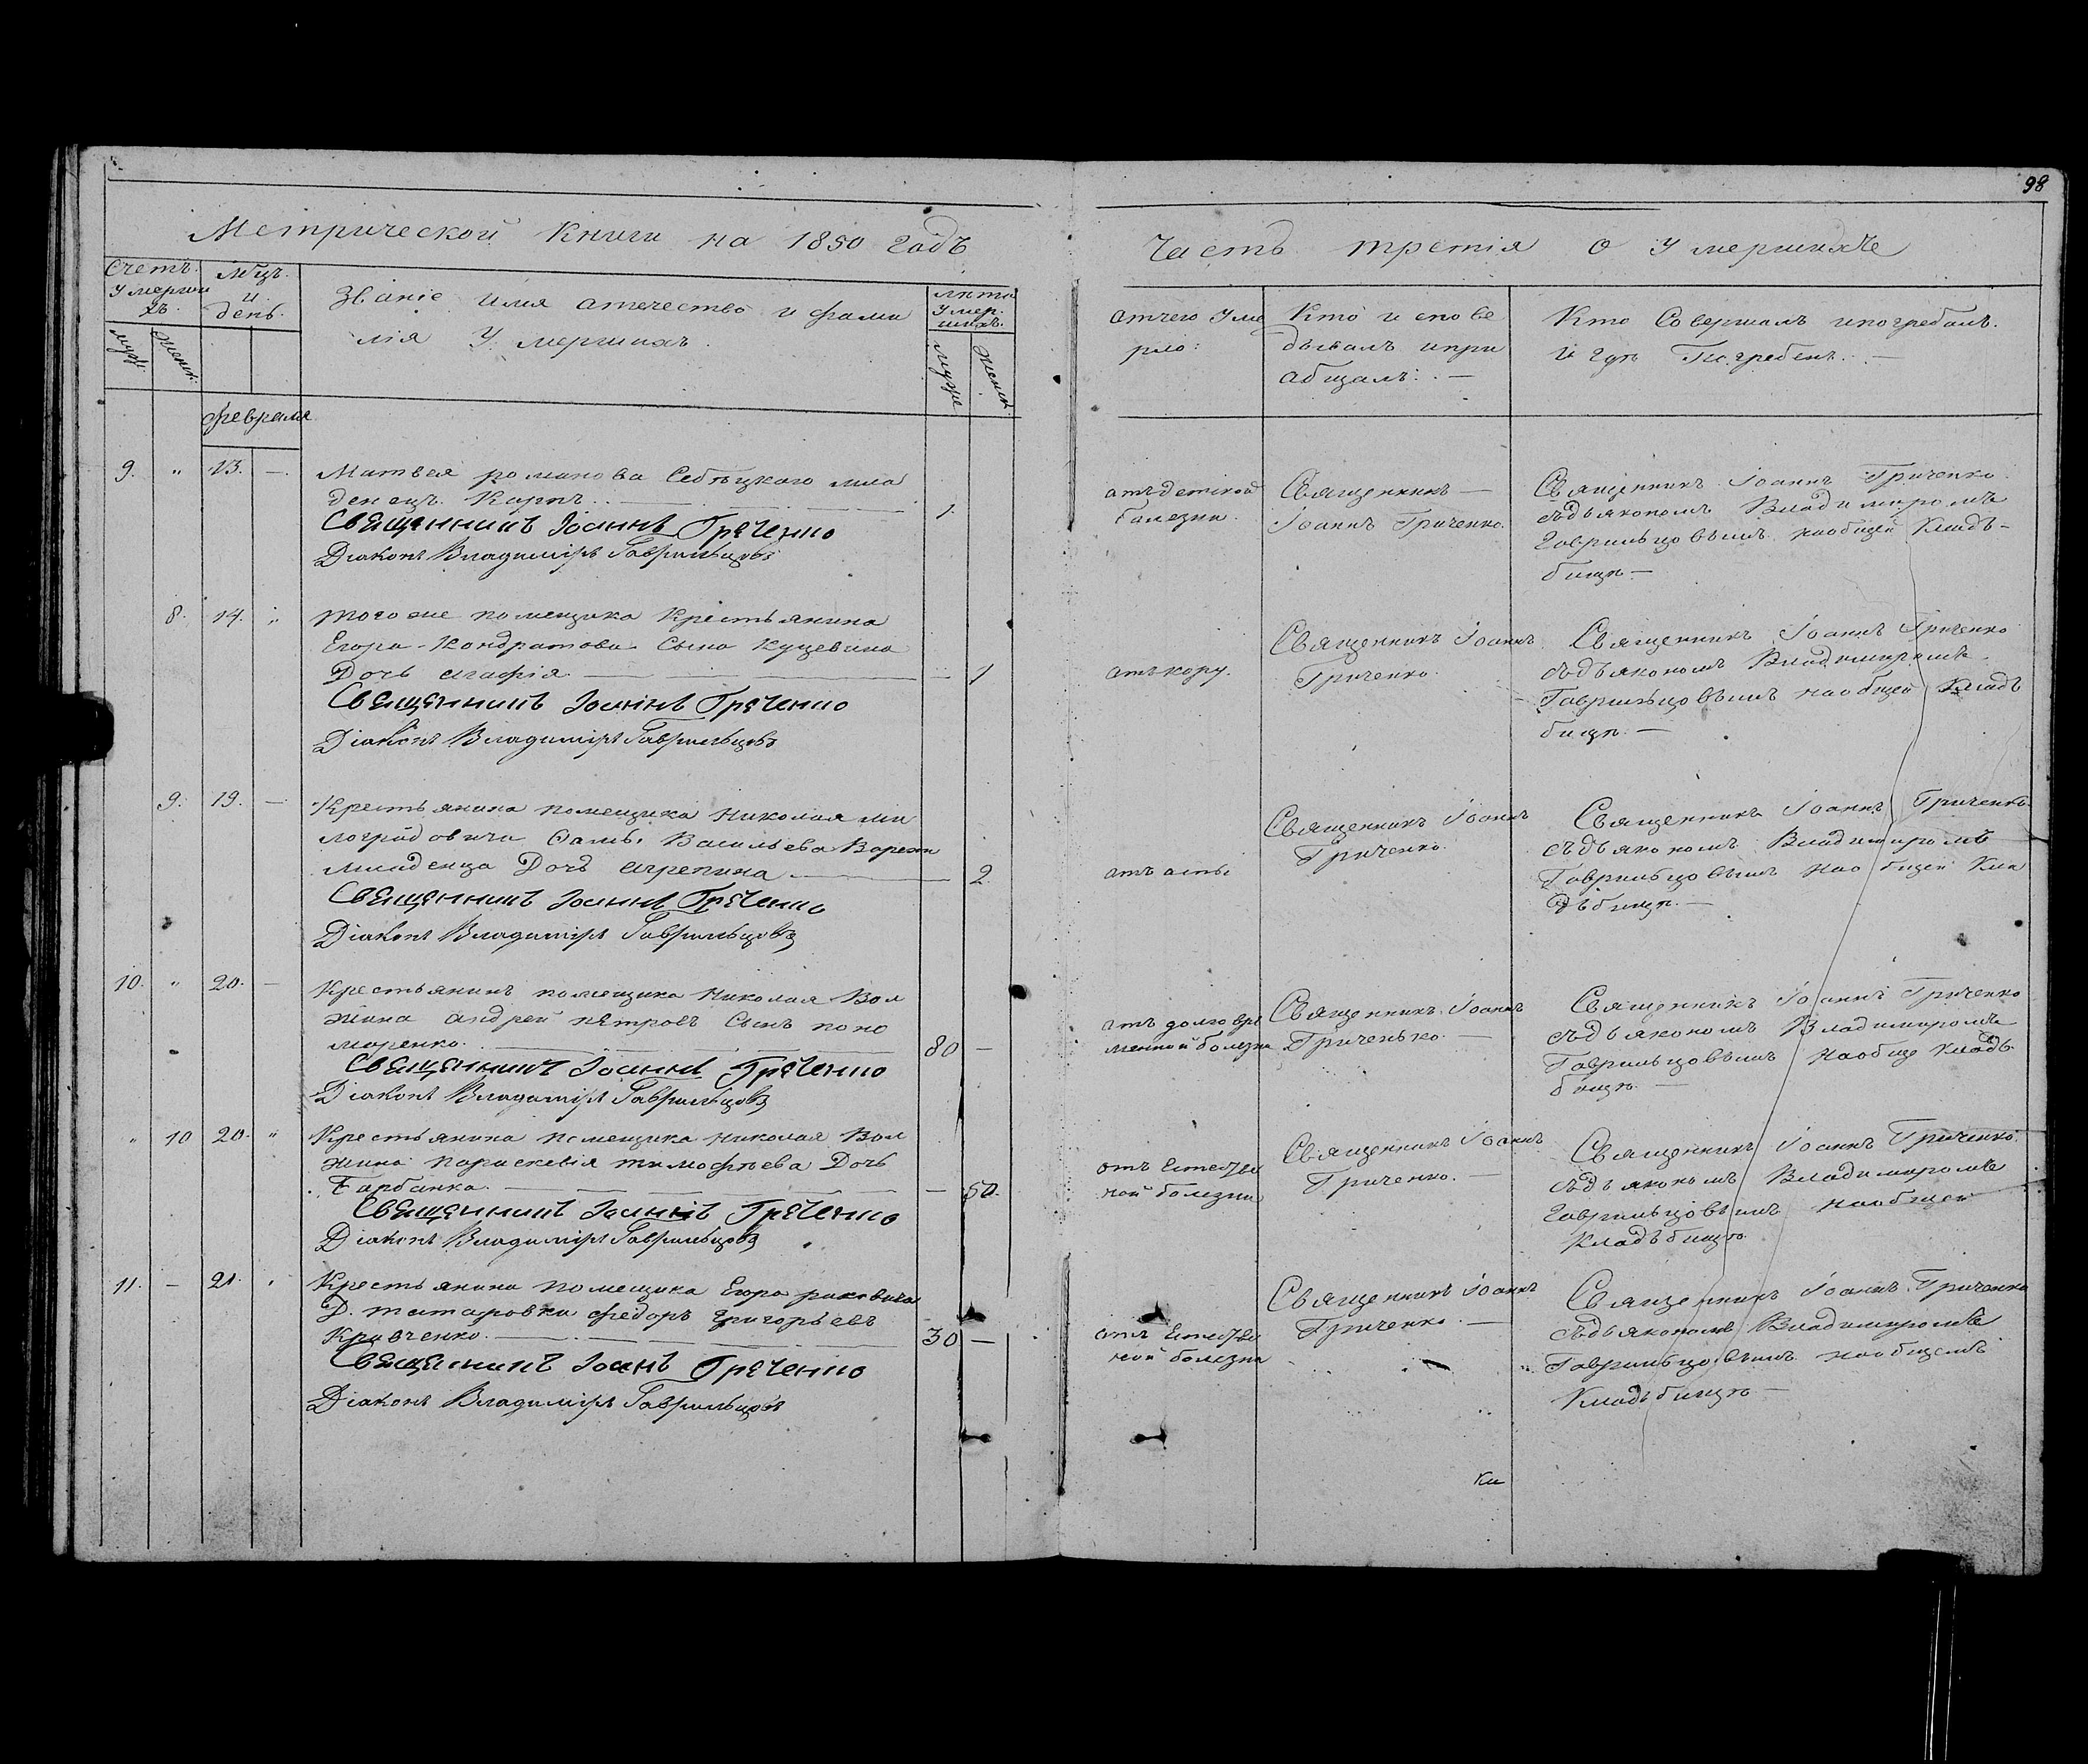 98
Метрической Книги на 1850 годъ
Часть третія о умершихъ
Счетъ
умерши
хъ.
Мцъ.
и
день.
Званіе имя атечество и фами
лія Умершихъ.
лѣта
Умер.
шихъ.
муж:
женк:
муже
женк:
атчего Уме
рло:
Кто и спове
дывалъ и при
абщалъ: —
Кто Совершалъ и погребалъ.
и гдѣ Погребенъ. —
февраля
9. " 13. —
Матвея романова Себѣцкаго мла
денецъ Карпъ.
1.
Священникъ Іоаннъ Гриченко
Діаконъ Владиміръ Гаврильцовъ
атъ детской
болезни.
Священникъ —
Іоаннъ Гриченко.
Священникъ Іоаннъ Гриченко
съдъякономъ Владимиромъ
Гаврильцовымъ на общей Кладъ-
бищѣ —
8. 14. "
того же помещика Крестьянина
Егора Кондратова Сына Куцевина
Дочь агафія
1
Священникъ Іоаннъ Гриченко
Діаконъ Владиміръ Гаврильцовъ
атъ кору.
Священникъ Іоаннъ
Гриченко.
Священникъ Іоаннъ Гриченко
съдъякономъ Владимиромъ
Гаврильцовымъ на общей Кладъ
бищѣ. —
9. 19. —
Крестьянина помещика Николая ми
лорадовича Васильева
младенца Дочь агрепина
2
Священникъ Іоаннъ Гриченко
Діаконъ Владиміръ Гаврильцовъ
атъ
Священникъ Іоаннъ
Гриченко.
Священникъ Іоаннъ Гриченко
съдъякономъ Владимиромъ
Гаврильцовымъ на общей Кла
дъбищѣ. —
10. " 20. —
Крестьянинъ помещика Николая Вол
жина андрей петровъ Сынъ поно
маренко.
80 —
Священникъ Іоаннъ Гриченко
Діаконъ Владиміръ Гаврильцовъ
атъ долговре
менной болезни
Священникъ Іоаннъ
Гриченько. —
Священникъ Іоаннъ Гриченко
съдъякономъ Владимиромъ
Гаврильцовымъ на обще Кладъ
бищѣ. —
" 10 20. "
Крестьянина помещика Николая Вол
жина параскевія тимофѣева Дочь
Гарбанка.
— 50.
Священникъ Іоаннъ Гриченко
Діаконъ Владиміръ Гаврильцовъ
отъ Естестве
ной болезни
Священникъ Іоаннъ
Гриченко. —
Священникъ Іоаннъ Гриченко
съдъякономъ Владимиромъ
Гаврильцовымъ на общей
Кладъбищѣ.
11. — 21.
Крестьянина помещика Егора раковича
Д. татаровки федоръ Григорьевъ
Кравченко.
30 —
Священникъ Іоанъ Гриченко
Діаконъ Владиміръ Гаврильцовъ
атъ Естестве
ной болезни
Священникъ Іоаннъ
Гриченко. —
Священникъ Іоаннъ Гриченко
съдъякономъ Владимиромъ
Гаврильцовымъ на общемъ
Кладьбищѣ —